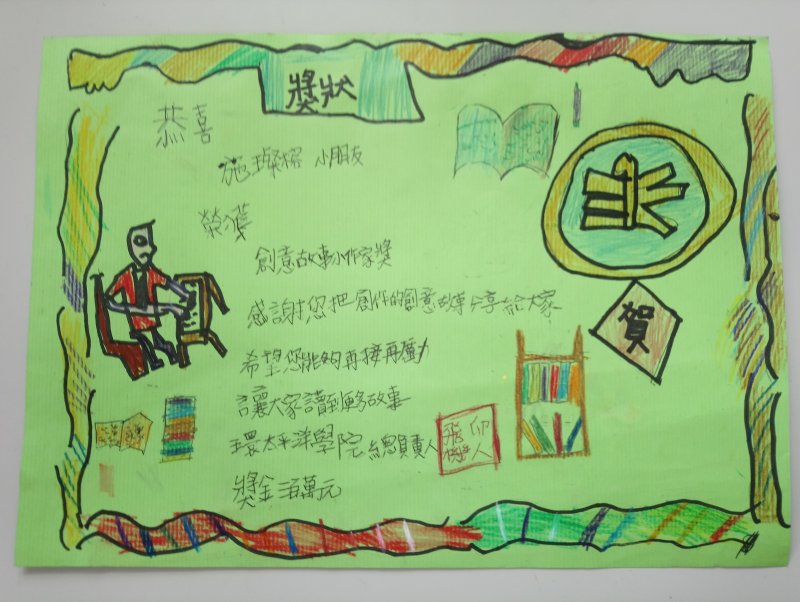 獎狀
恭喜
施璨榕 小朋友
榮獲
創意故事小作家獎
感謝您把創作的創意故事分享給大家
希望您能夠再接再厲
讓大家讀到更多故事
環太平洋學院總負責人
飛機仰人
獎金百萬元
賀